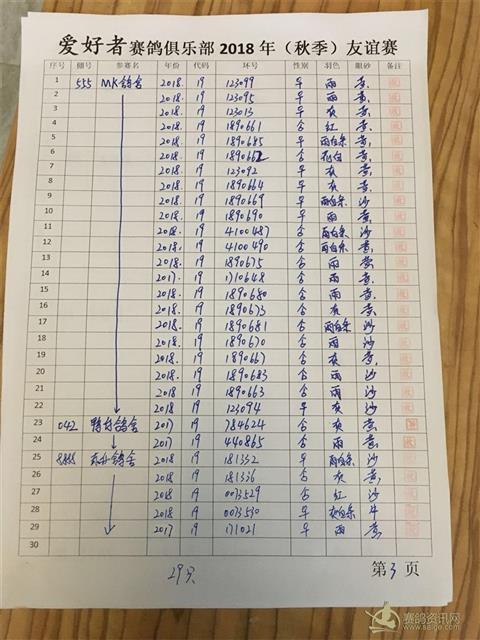 爱好者赛鸽俱乐部 2018 年（秋季）友谊赛
序号 棚号 参赛名 年份 代码 环号 性别 羽色 眼砂 备注
1 555 MK鸽舍 2018. 19 123099 早 雨 黄.
2 2018. 19 123095 早 雨 黄.
3 2018. 19 123013 早 灰 黄.
4 2018. 19 1890661 合 红 黄.
5 2018. 19 1890685 早 雨白条 黄.
6 2018. 19 1890662 合 花白 黄.
7 2018. 19 123092 早 灰 黄.
8 2018. 19 1890664 早 灰 黄.
9 2018. 19 1890669 早 雨白条 沙
10 2018. 19 1890690 早 雨 黄.
11 2018. 19 4100487 合 雨白条 沙
12 2018. 19 4100490 合 雨白条 黄.
13 2018. 19 1890675 合 雨 黄.
14 2017. 19 1710648 合 雨 黄.
15 2018. 19 1890680 合 雨 黄.
16 2018. 19 1890673 合 灰 黄.
17 2018. 19 1890681 合 雨白条 沙
18 2018. 19 1890670 合 雨 沙
19 2018. 19 1890667 合 灰 黄.
20 2018. 19 1890683 合 雨 沙
21 2018. 19 1890663 合 雨 沙
22 2018 19 123094 早 灰 沙
23 042 鸽舍 2017 19 784624 合 灰 黄
24 2017 19 440865 合 雨 黄
25 8888 鸽舍 2018 19 181352 早 雨白条 沙
26 2018 19 181336 合 灰 黄.
27 2018 19 0073529 合 红 沙
28 2018 19 0073530 早 灰白条 牛
29 2017 19 171021 早 雨 黄
30
29只
第3页
赛鸽资讯网
www.saige.com